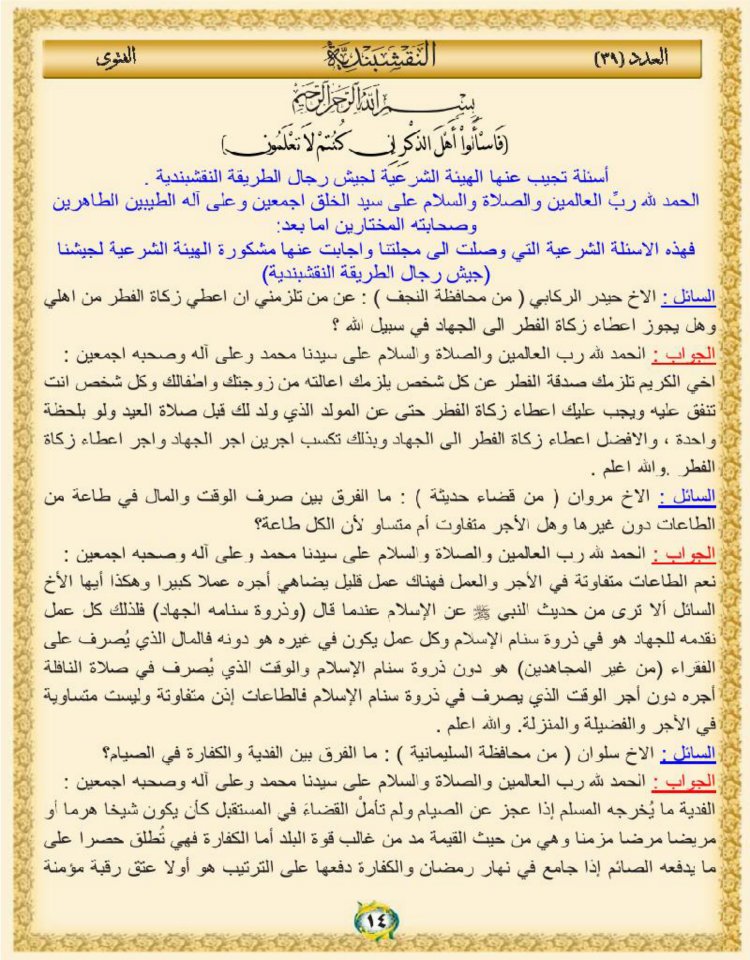 العدد (٣٩) النقشبندية الفتوى
بسم الله الرحمن الرحيم
(فَاسْأَلُواْ أَهْلَ الذِّكْرِ إِن كُنتُمْ لاَ تَعْلَمُونَ)
أسئلة تجيب عنها الهيئة الشرعية لجيش رجال الطريقة النقشبندية .
الحمد لله ربِّ العالمين والصلاة والسلام على سيد الخلق اجمعين وعلى آله الطيبين الطاهرين
وصحابته المختارين اما بعد:
فهذه الاسئلة الشرعية التي وصلت الى مجلتنا واجابت عنها مشكورة الهيئة الشرعية لجيشنا
(جيش رجال الطريقة النقشبندية)
السائل : الاخ حيدر الركابي ( من محافظة النجف ) : عن من تلزمني ان اعطي زكاة الفطر من اهلي
وهل يجوز اعطاء زكاة الفطر الى الجهاد في سبيل الله ؟
الجواب : الحمد لله رب العالمين والصلاة والسلام على سيدنا محمد وعلى آله وصحبه اجمعين :
اخي الكريم تلزمك صدقة الفطر عن كل شخص يلزمك اعالته من زوجتك واطفالك وكل شخص انت
تنفق عليه ويجب عليك اعطاء زكاة الفطر حتى عن المولد الذي ولد لك قبل صلاة العيد ولو بلحظة
واحدة ، والافضل اعطاء زكاة الفطر الى الجهاد وبذلك تكسب اجرين اجر الجهاد واجر اعطاء زكاة
الفطر .والله اعلم .
السائل : الاخ مروان ( من قضاء حديثة ) : ما الفرق بين صرف الوقت والمال في طاعة من
الطاعات دون غيرها وهل الأجر متفاوت أم متساو لأن الكل طاعة؟
الجواب : الحمد لله رب العالمين والصلاة والسلام على سيدنا محمد وعلى آله وصحبه اجمعين :
نعم الطاعات متفاوتة في الأجر والعمل فهناك عمل قليل يضاهي أجره عملا كبيرا وهكذا أيها الأخ
السائل ألا ترى من حديث النبي ﷺ عن الإسلام عندما قال (وذروة سنامه الجهاد) فلذلك كل عمل
نقدمه للجهاد هو في ذروة سنام الإسلام وكل عمل يكون في غيره هو دونه فالمال الذي يُصرف على
الفقراء (من غير المجاهدين) هو دون ذروة سنام الإسلام والوقت الذي يُصرف في صلاة النافلة
أجره دون أجر الوقت الذي يصرف في ذروة سنام الإسلام فالطاعات إذن متفاوتة وليست متساوية
في الأجر والفضيلة والمنزلة. والله اعلم .
السائل : الاخ سلوان ( من محافظة السليمانية ) : ما الفرق بين الفدية والكفارة في الصيام؟
الجواب : الحمد لله رب العالمين والصلاة والسلام على سيدنا محمد وعلى آله وصحبه اجمعين :
الفدية ما يُخرجه المسلم إذا عجز عن الصيام ولم تأملْ القضاءَ في المستقبل كأن يكون شيخا هرما أو
مريضا مرضا مزمنا وهي من حيث القيمة مد من غالب قوة البلد أما الكفارة فهي تُطلق حصرا على
ما يدفعه الصائم إذا جامع في نهار رمضان والكفارة دفعها على الترتيب هو أولا عتق رقبة مؤمنة
١٤